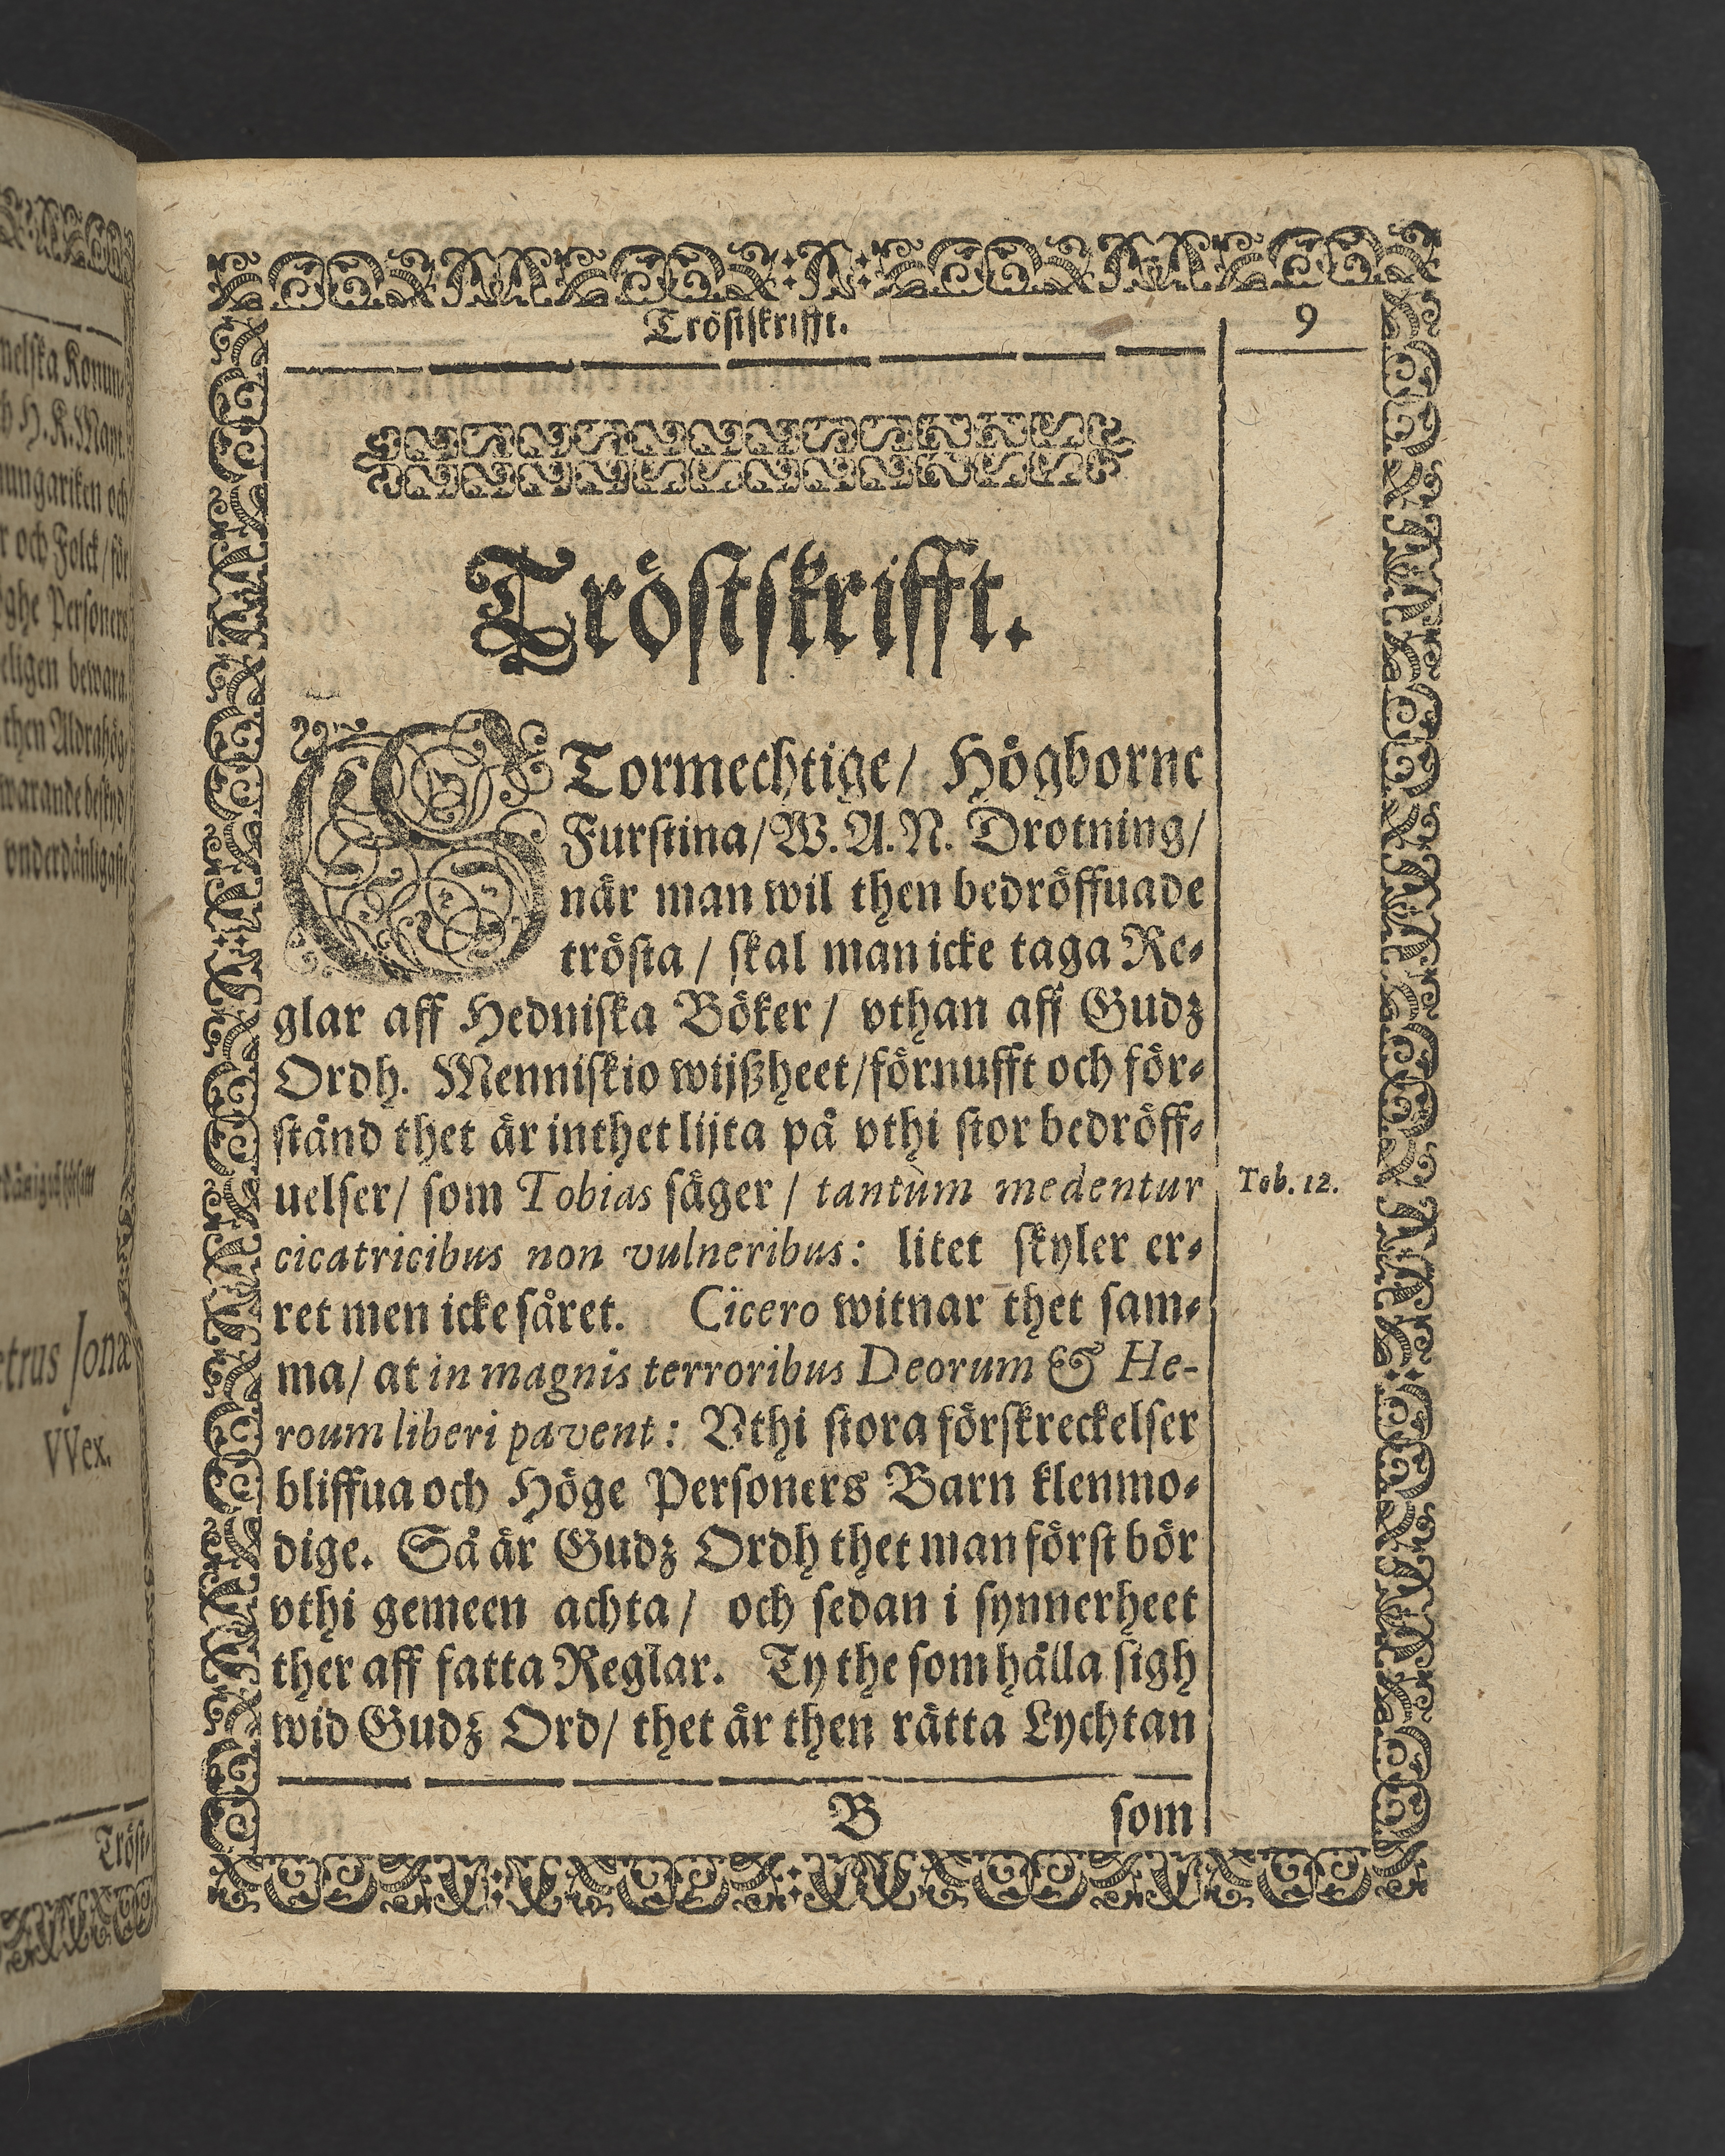 nelſka Konun⸗
H. K. Mayt.
nungariken och
och Folck / för
ghe Perſoners
eligen bewara.
then Aldrahög⸗
vnderdänligaſte
etrus Jonæ
VVex.
Tröſt⸗
Tröſtſkrifft.
9
Tröſtſkrifft.
STormechtige / Högborne
Furſtina / W. A. N. Drotning /
när man wil then bedröffuade
tröſta / ſkal man icke taga Re⸗
glar aff Hedniſka Böker / vthan aff Gudz
Ordh. Menniſkio wijßheet / förnufft och för⸗
ſtånd thet är inthet lijta på vthi ſtor bedröff⸗
uelſer / ſom Tobias ſäger / tantùm medentur
Tob. 12.
cicatricibus non vulneribus: litet ſkyler er⸗
ret men icke ſåret. Cicero witnar thet ſam⸗
ma / at in magnis terroribus Deorum & He-
roum liberi pavent: Vthi ſtora förſkreckelſer
bliffua och Höge Perſoners Barn klenmo⸗
dige. Så är Gudz Ordh thet man förſt bör
vthi gemeen achta / och ſedan i ſynnerheet
ther aff fatta Reglar. Ty the ſom hålla ſigh
wid Gudz Ord / thet är then rätta Lychtan
B
ſom